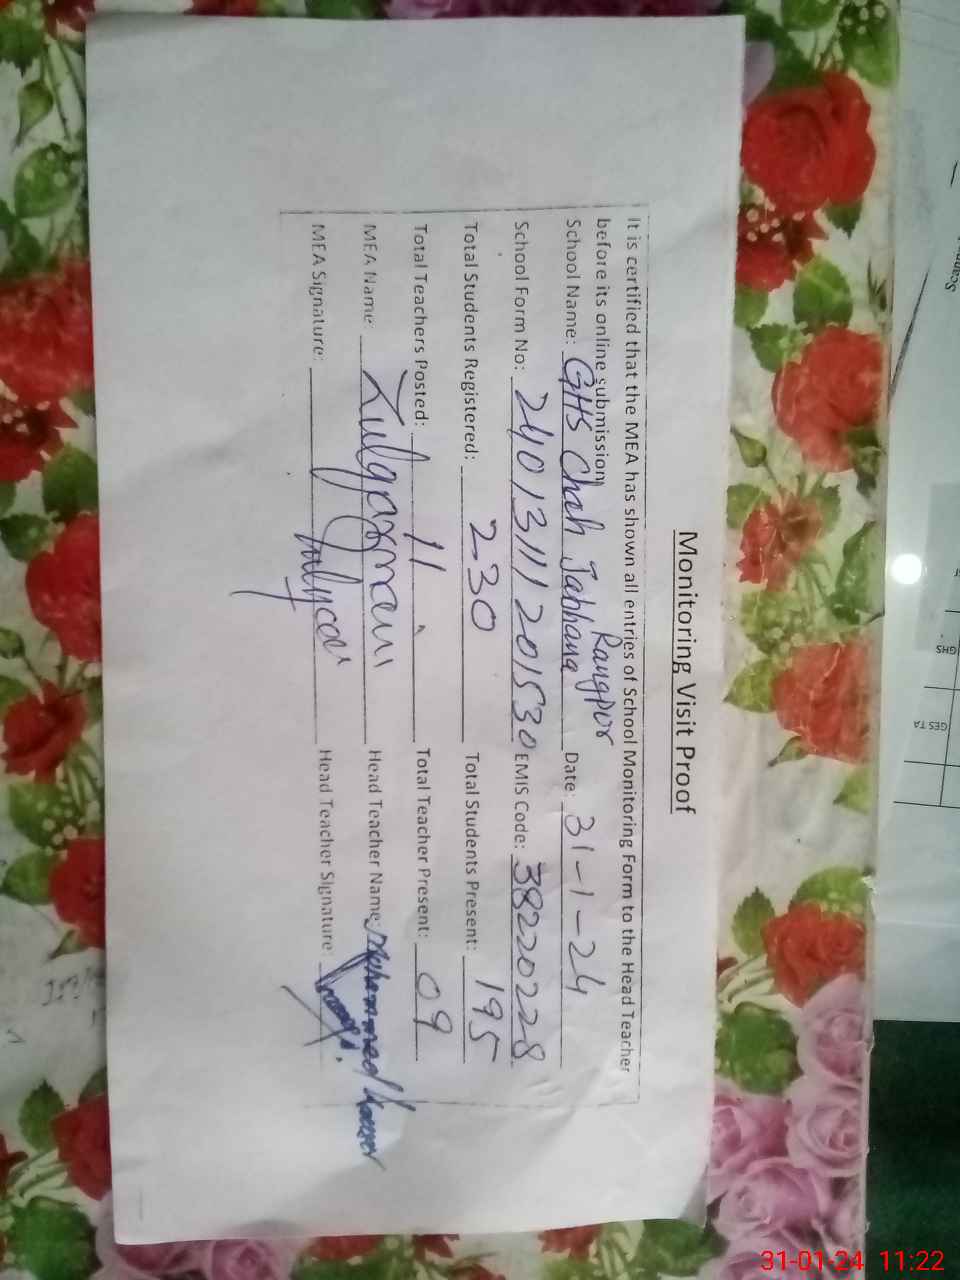 Monitoring Visit Proof
It is certified that the MEA has shown all entries of School Monitoring Form to the Head Teacher
before its online submission
School Name: GHS Chah Jabhana Rangpur Date: 31-1-24
School Form No: 2401311120 1530 EMIS Code: 38220228
Total Students Registered: 230 Total Students Present: 195
Total Teachers Posted: 11 Total Teacher Present: 09
MEA Name: Zulqarnain Head Teacher Name: Muhammad
MEA Signature: Head Teacher Signature:
GHS
GES TA
31-01-24 11:22